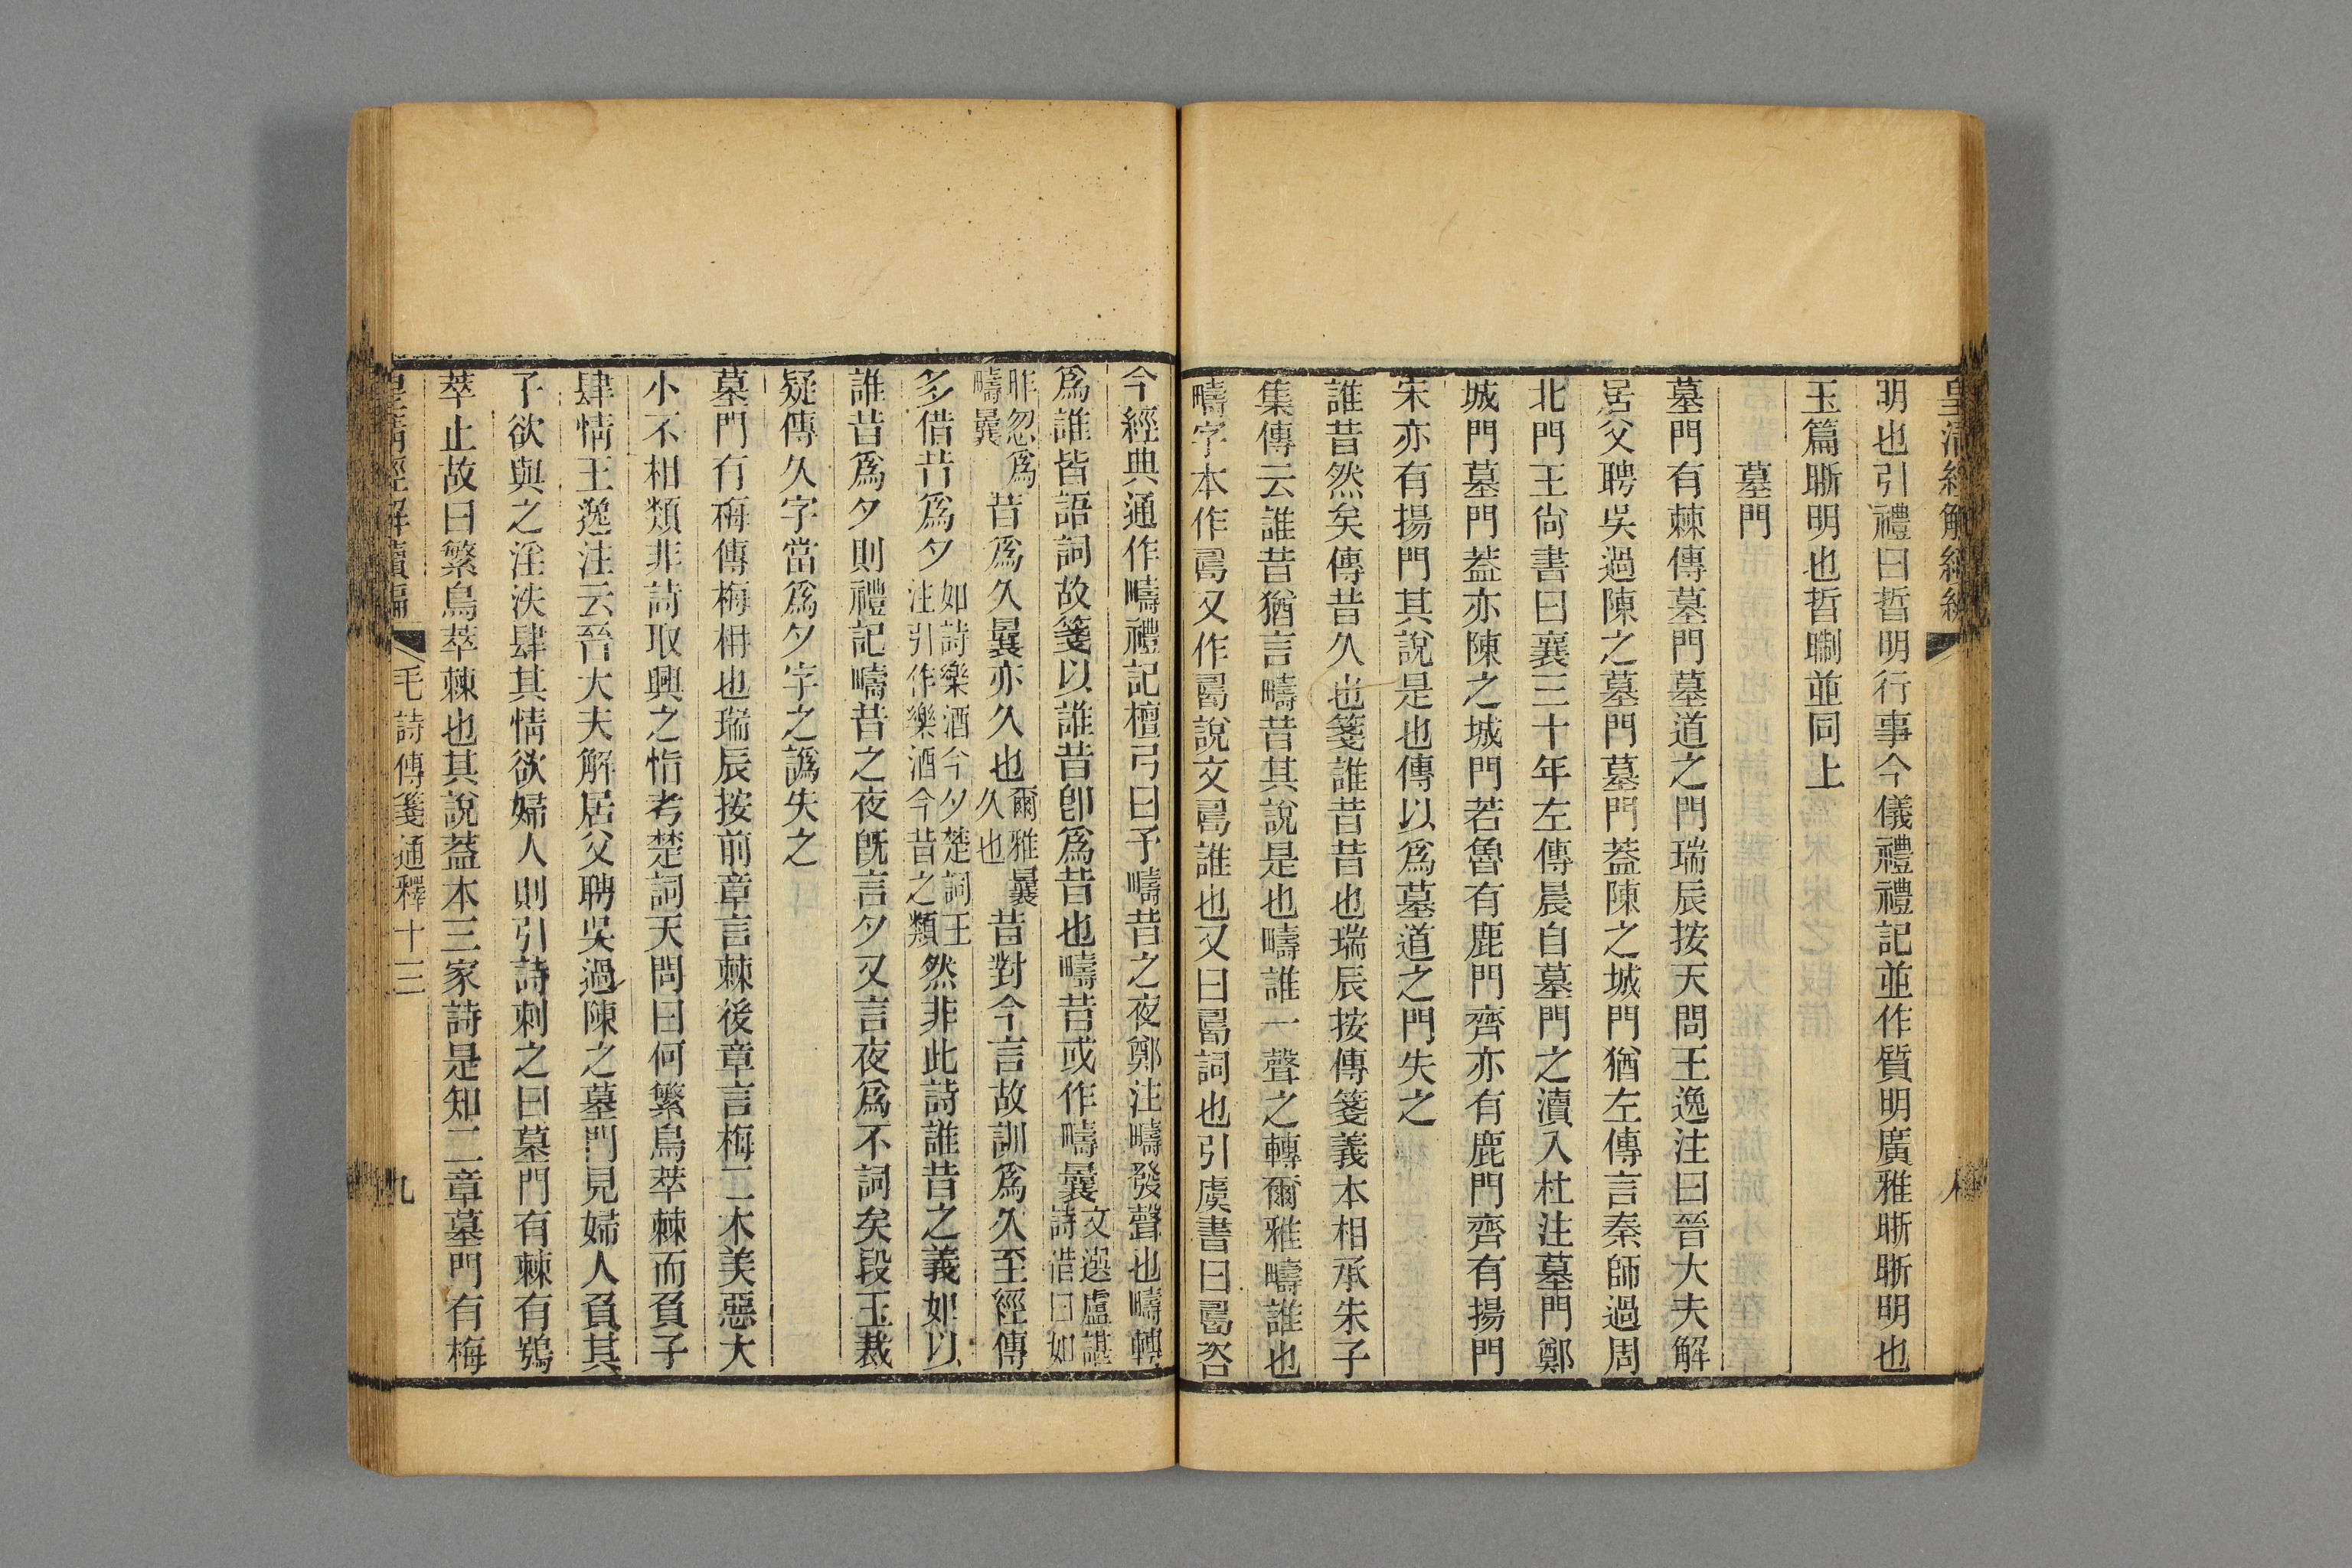 皇清經解續編
八
明也引禮曰晢明行事今儀禮禮記並作質明廣雅晣晣明也
玉篇晣明也晢㫼並同上
墓門
墓門有棘傳墓門墓道之門瑞辰按天問王逸注曰晉大夫解
居父聘吳過陳之墓門墓門蓋陳之城門猶左傳言秦師過周
北門王尚書曰襄三十年左傳晨自墓門之瀆入杜注墓門鄭
城門墓門蓋亦陳之城門若魯有鹿門齊亦有鹿門齊有揚門
宋亦有揚門其說是也傳以爲墓道之門失之
誰昔然矣傳昔久也箋誰昔昔也瑞辰按傳箋義本相承朱子
集傳云誰昔猶言疇昔其說是也疇誰一聲之轉爾雅疇誰也
疇字本作𠷎又作𠷎說文𠷎誰也又曰𠷎詞也引虞書曰𠷎咨
今經典通作疇禮記檀弓曰予疇昔之夜鄭注疇發聲也疇轉
爲誰皆語詞故箋以誰昔卽爲昔也疇昔或作疇曩文選盧諶
詩借曰如
昨忽爲
疇曩昔爲久曩亦久也爾雅曩
久也昔對今言故訓爲久至經傳
多借昔爲夕如詩樂酒今夕楚詞王
注引作樂酒今昔之類然非此詩誰昔之義如以
誰昔爲夕則禮記疇昔之夜旣言夕又言夜爲不詞矣段玉裁
疑傳久字當爲夕字之譌失之
墓門有梅傳梅柟也瑞辰按前章言棘後章言梅二木美惡大
小不相類非詩取興之恉考楚詞天問曰何繁鳥萃棘而負子
肆情王逸注云晉大夫解居父聘吳過陳之墓門見婦人負其
子欲與之淫泆肆其情欲婦人則引詩刺之曰墓門有棘有鴞
萃止故曰繁鳥萃棘也其說蓋本三家詩是知二章墓門有梅
皇清經解續編
毛詩傳箋通釋十三
九